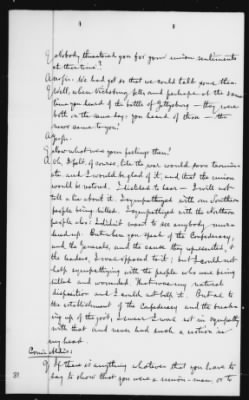 Q Nobody threatened you for your union sentiments
at that time?
A No sir. We had got so that we could talk some then.
Q Well, when Vicksburg fell and perhaps at the same
time you heard of the battle of Gettysburg — they were
both on the same day: you heard of those — the
news came to you?
A Yes sir.
Q Now what were your feelings then?
A Oh, I felt, of course, like the war would soon termin-
ate and I would be glad of it, and that the union
would be restored. I disliked to hear — I will not
tell a lie about it. I sympathized with our Southern
people being killed. I sympathized with the Northern
people also: I didn't want to see anybody mur-
dered up. But when you speak of the Confederacy,
and the Generals, and the cause they represented, &
the leaders, I was opposed to it: but I could not
help sympathizing with the people who were being
killed and wounded. That was my natural
disposition and I could not help it. But as to
the establishment of the Confederacy and the break-
ing up of the gov't, I never was not in sympathy
with that and never had such a notion in
my head.
Q If there is anything whatever that you have to
say to show that you were a union man, or to